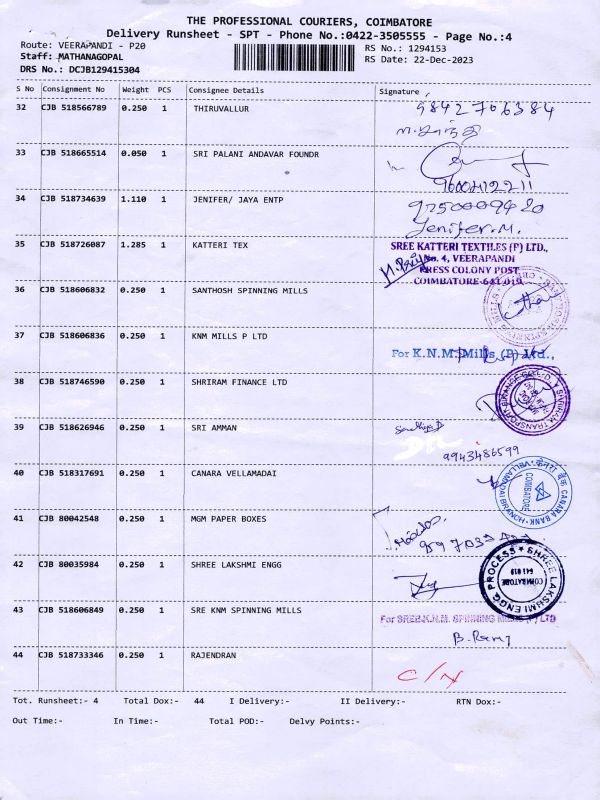 THE PROFESSIONAL COURIERS, COIMBATORE
Delivery Runsheet - SPT - Phone No.:0422-3505555 - Page No.:4
Route: VEERAPANDI - P20
RS No.: 1294153
Staff: MATHANAGOPAL
RS Date: 22-Dec-2023
DRS No.: DCJB129415304
S No Consignment No Weight PCS Consignee Details Signature
32 CJB 518566789 0.250 1 THIRUVALLUR 9842706384
33 CJB 518665514 0.050 1 SRI PALANI ANDAVAR FOUNDR
34 CJB 518734639 1.110 1 JENIFER/ JAYA ENTP
Jenifer.M.
35 CJB 518726087 1.285 1 KATTERI TEX SREE KATTERI TEXTILES (P) LTD.,
No. 4, VEERAPANDI
PRESS COLONY POST
COIMBATORE-641 019.
36 CJB 518606832 0.250 1 SANTHOSH SPINNING MILLS
37 CJB 518606836 0.250 1 KNM MILLS P LTD
For K.N.M. Mills (P) Ltd.,
38 CJB 518746590 0.250 1 SHRIRAM FINANCE LTD
39 CJB 518626946 0.250 1 SRI AMMAN
9943486599
40 CJB 518317691 0.250 1 CANARA VELLAMADAI
CANARA BANK
VELLAMADAI BRANCH
COIMBATORE
41 CJB 80042548 0.250 1 MGM PAPER BOXES
42 CJB 80035984 0.250 1 SHREE LAKSHMI ENGG
SHREE LAKSHMI ENGG PROCESS
COIMBATORE
641 019
43 CJB 518606849 0.250 1 SRE KNM SPINNING MILLS For SREE K.N.M. SPINNING MILLS (P) LTD
44 CJB 518733346 0.250 1 RAJENDRAN
C/N
Tot. Runsheet:- 4 Total Dox:- 44 I Delivery:- II Delivery:- RTN Dox:-
Out Time:- In Time:- Total POD:- Delvy Points:-